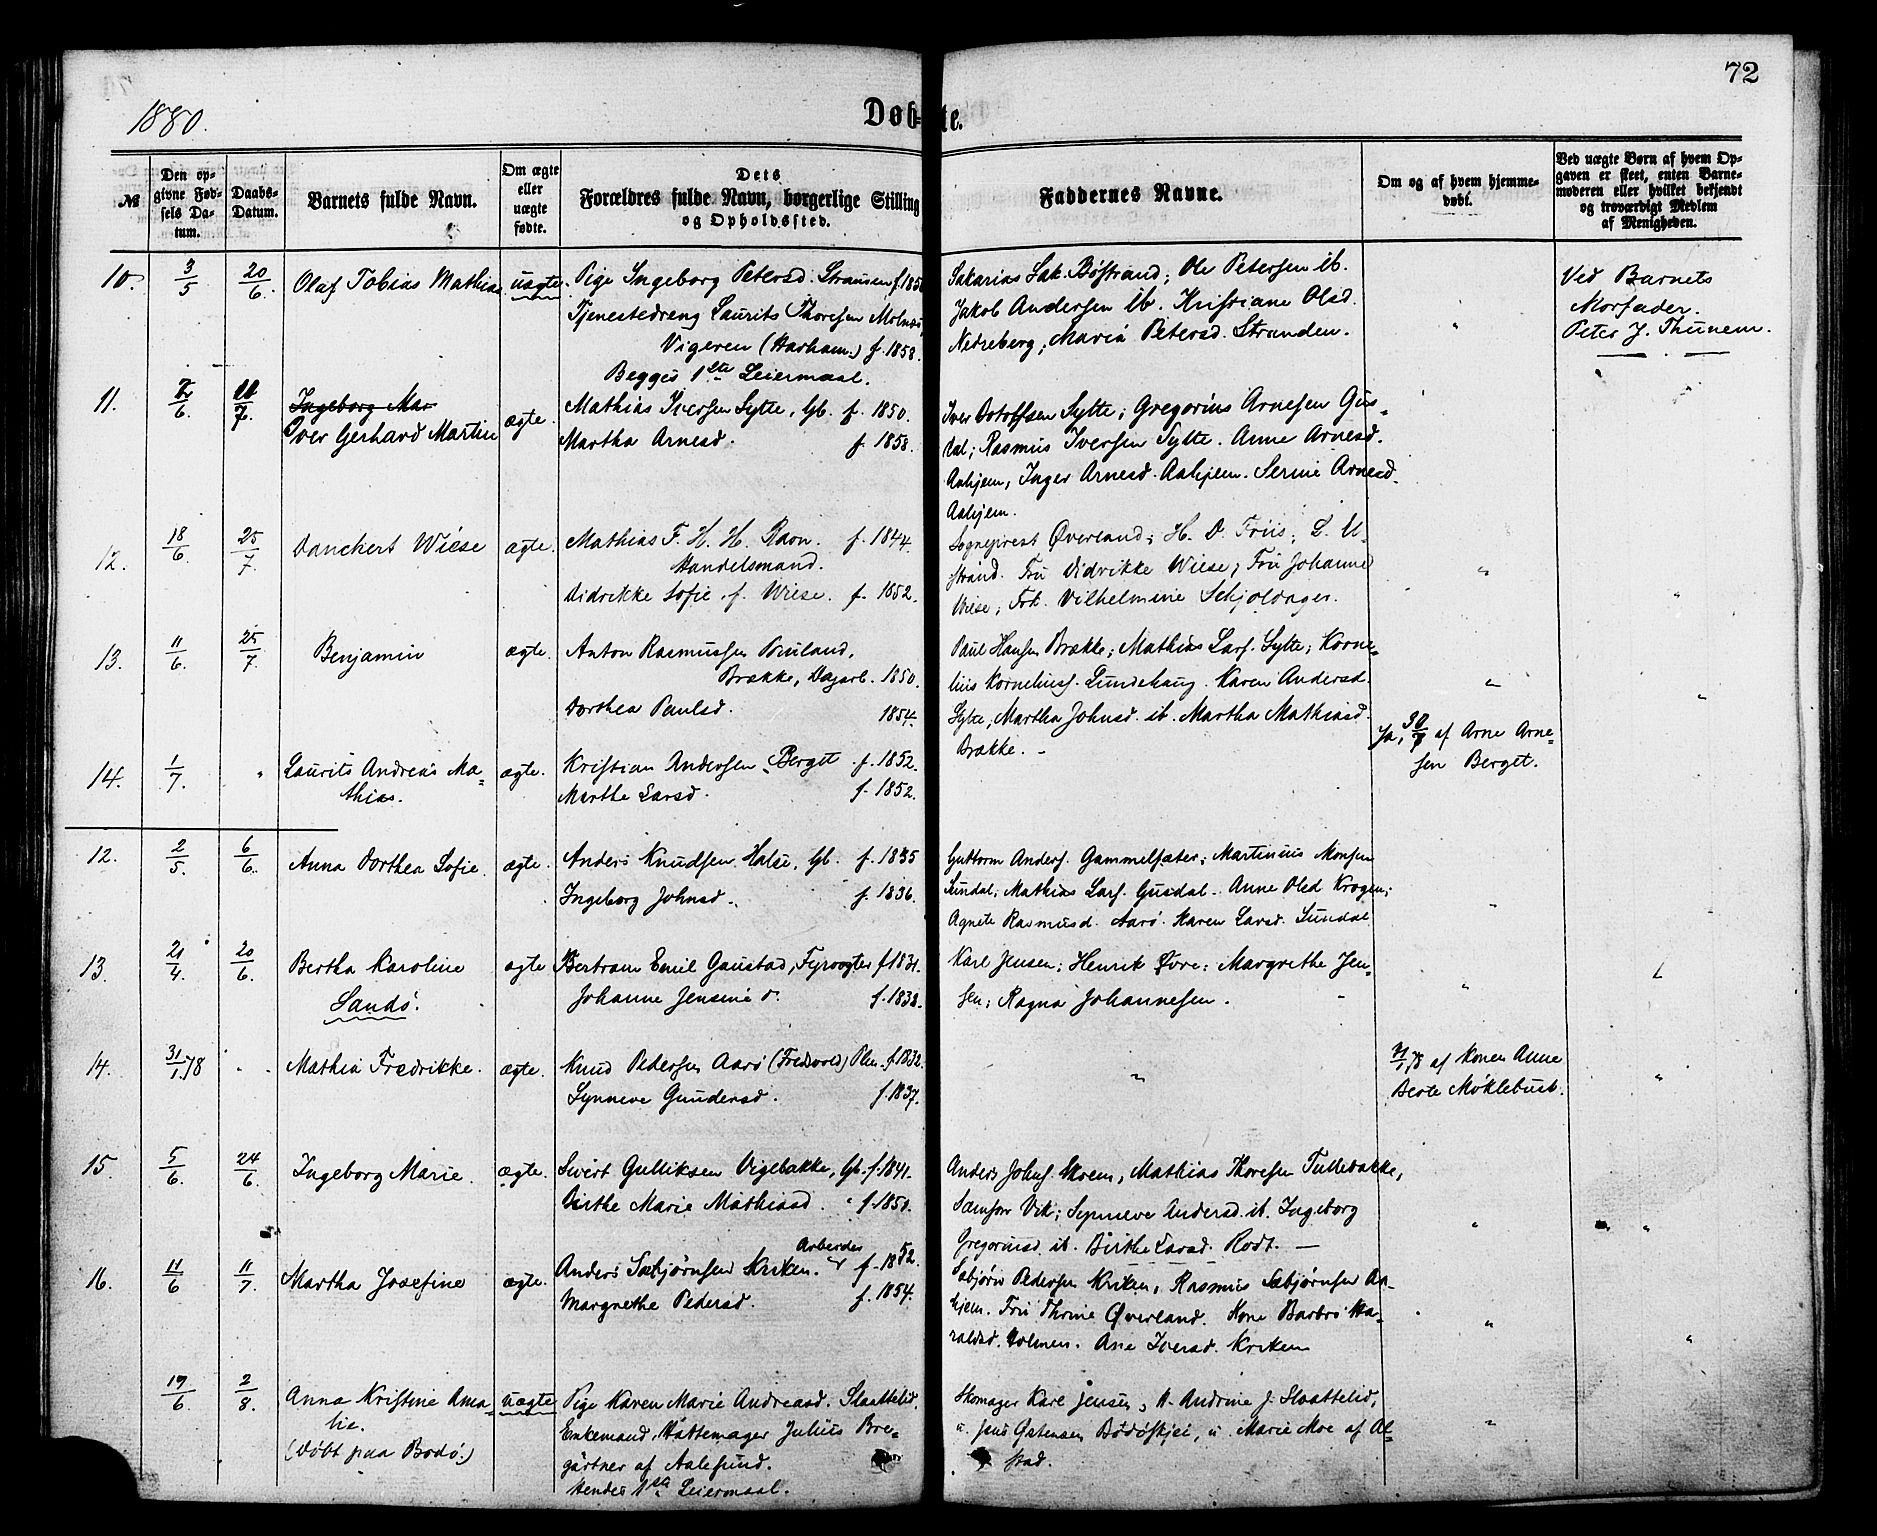 72
1880.
Døbte.
№
Den opgivne Fødsels Datum.
Daabs-Datum.
Barnets fulde Navn.
Om ægte eller uægte fødte.
Dets Forældres fulde Navn, borgerlige Stilling og Opholdssted.
Faddernes Navne.
Om og af hvem hjemmedøbt.
Ved uægte Børn af hvem Opgaven er skeet, enten Barnemoderen eller hvilket bekjendt og troværdigt Medlem af Menigheden.
10. 3/5 20/6. Olaf Tobias Mathias uægte. Pige Ingeborg Petersd. Stransen f. 185
Tjenestedreng Laurits Thoresen Molnes
Vigeren (Harham.) f. 1858.
Begges 1ste Leiermaal.
Sakarias Sak. Bøstrand; Ole Petersen ib.
Jakob Andersen ib. Kristiane Olsd.
Nedreberg; Maria Petersd. Stranden.
"
Ved Barnets
Morfader.
Peter J. Thunem.
11. 2/6 11/7. Ingeborg Mar
Iver Gerhard Martin ægte. Mathias Iversen Sylte, Gb. f. 1850.
Martha Arnesd. f. 1858.
Iver Dotoffsen Sylte; Gregorius Arnesen Gus-
dal; Rasmus Iversen Sylte. Anne Arnesd.
Aahjem, Inger Arnesd. Aahjem. Serine Arnesd.
Aahjem.
12. 18/6. 25/7. Danckert Wiese ægte. Mathias F. H. H. Ravn. f. 1844.
Handelsmand.
Didrikke Sofie f. Wiese. f. 1852.
Sogneprest Øverland; H. D. Friis; L. U-
strand. Fru Didrikke Wiese; Fru Johanne
Wiese; Frk. Vilhelmine Schjoldager.
"
13. 11/6. 25/7. Benjamin ægte. Anton Rasmussen Buland,
Brække, Dagarb. 1850.
Dorthea Paulsd. 1854.
Paul Hansen Brække; Mathias Lars. Sylte; Korne-
lius Korneliuss. Lundehaug. Karen Andersd.
Sylte; Martha Johnsd. ib. Martha Mathiasd.
Brække. -
"
14. 1/7. " Laurits Andreas Ma-
thias. ægte. Kristian Andersen Berget f. 1852.
Marthe Larsd. f. 1852.
Ja, 30/7 af Arne Arne-
sen Berget.
12. 2/5. 6/6. Anna Dorthea Sofie. ægte. Anders Knudsen Halse, Gb. f. 1835
Ingeborg Johnsd. f. 1836.
Guttorm Anders. Gammelsæter; Martinus Monsen
Sundal; Mathias Lars. Gusdal. Anne Olsd Krogen;
Agnete Rasmusd. Aarø. Karen Larsd. Sundal
"
13 21/4. 20/6. Bertha Karoline
Sandø. ægte Bertram Emil Gaustad, Fyrvogter f 1831.
Johanne Jensine f. 1838.
Karl Jensen; Henrik Øvre; Margrethe Jen-
sen; Ragna Johannesen.
"
14. 31/1 78 " Mathia Fredrikke. ægte. Knud Pedersen Aarø (Fredsvold) f 1832.
Synneve Gundersd. f. 1837.
"
31/1 78 af Konen Anne
Berte Møklebust.
"
15. 5/6. 24/6. Ingeborg Marie. ægte. Sivert Gulliksen Vigebakke, Gb. f. 1841.
Birthe Marie Mathiasd. f. 1850.
Anders Johns. Skren, Mathias Thoresen Tullebakke,
Samson Vik; Synneve Andersd. ib. Ingeborg
Gregoriusd. ib. Birthe Larsd. Rødt. —
"
16. 11/6 11/7. Martha Josefine ægte. Anders Sæbjørnsen Kriken. Arbeider f. 1852.
Margrethe Pedersd. f. 1854.
Sæbjørn Pedersen Kriken, Rasmus Sæbjørnsen Aa-
hjem. Fru Thrine Øverland. Kone Barbro Ha-
raldsd. Holmen. Ane Iversd. Kriken
"
19/6 2/8. Anna Kristine Ama-
lie.
(Døbt paa Bodø.) uægte Pige Karen Marie Andreasd. Slaattelid,
Enkemand, Hattemager Julius Bre-
gärtner af Aalesund.
Hendes 1ste Leiermaal.
Skomager Karl Jensen, H. Andrine J. Slaattelid,
u. Jens Østensen Bødøskjei, u. Marie Moe af Al-
stad.
"